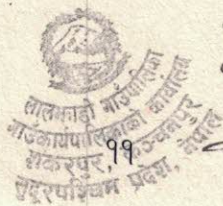 लालझाडी गाउँपालिका
गाउँकार्यपालिकाको कार्यालय
शंकरपुर, कञ्चनपुर
सुदूरपश्चिम प्रदेश, नेपाल
११